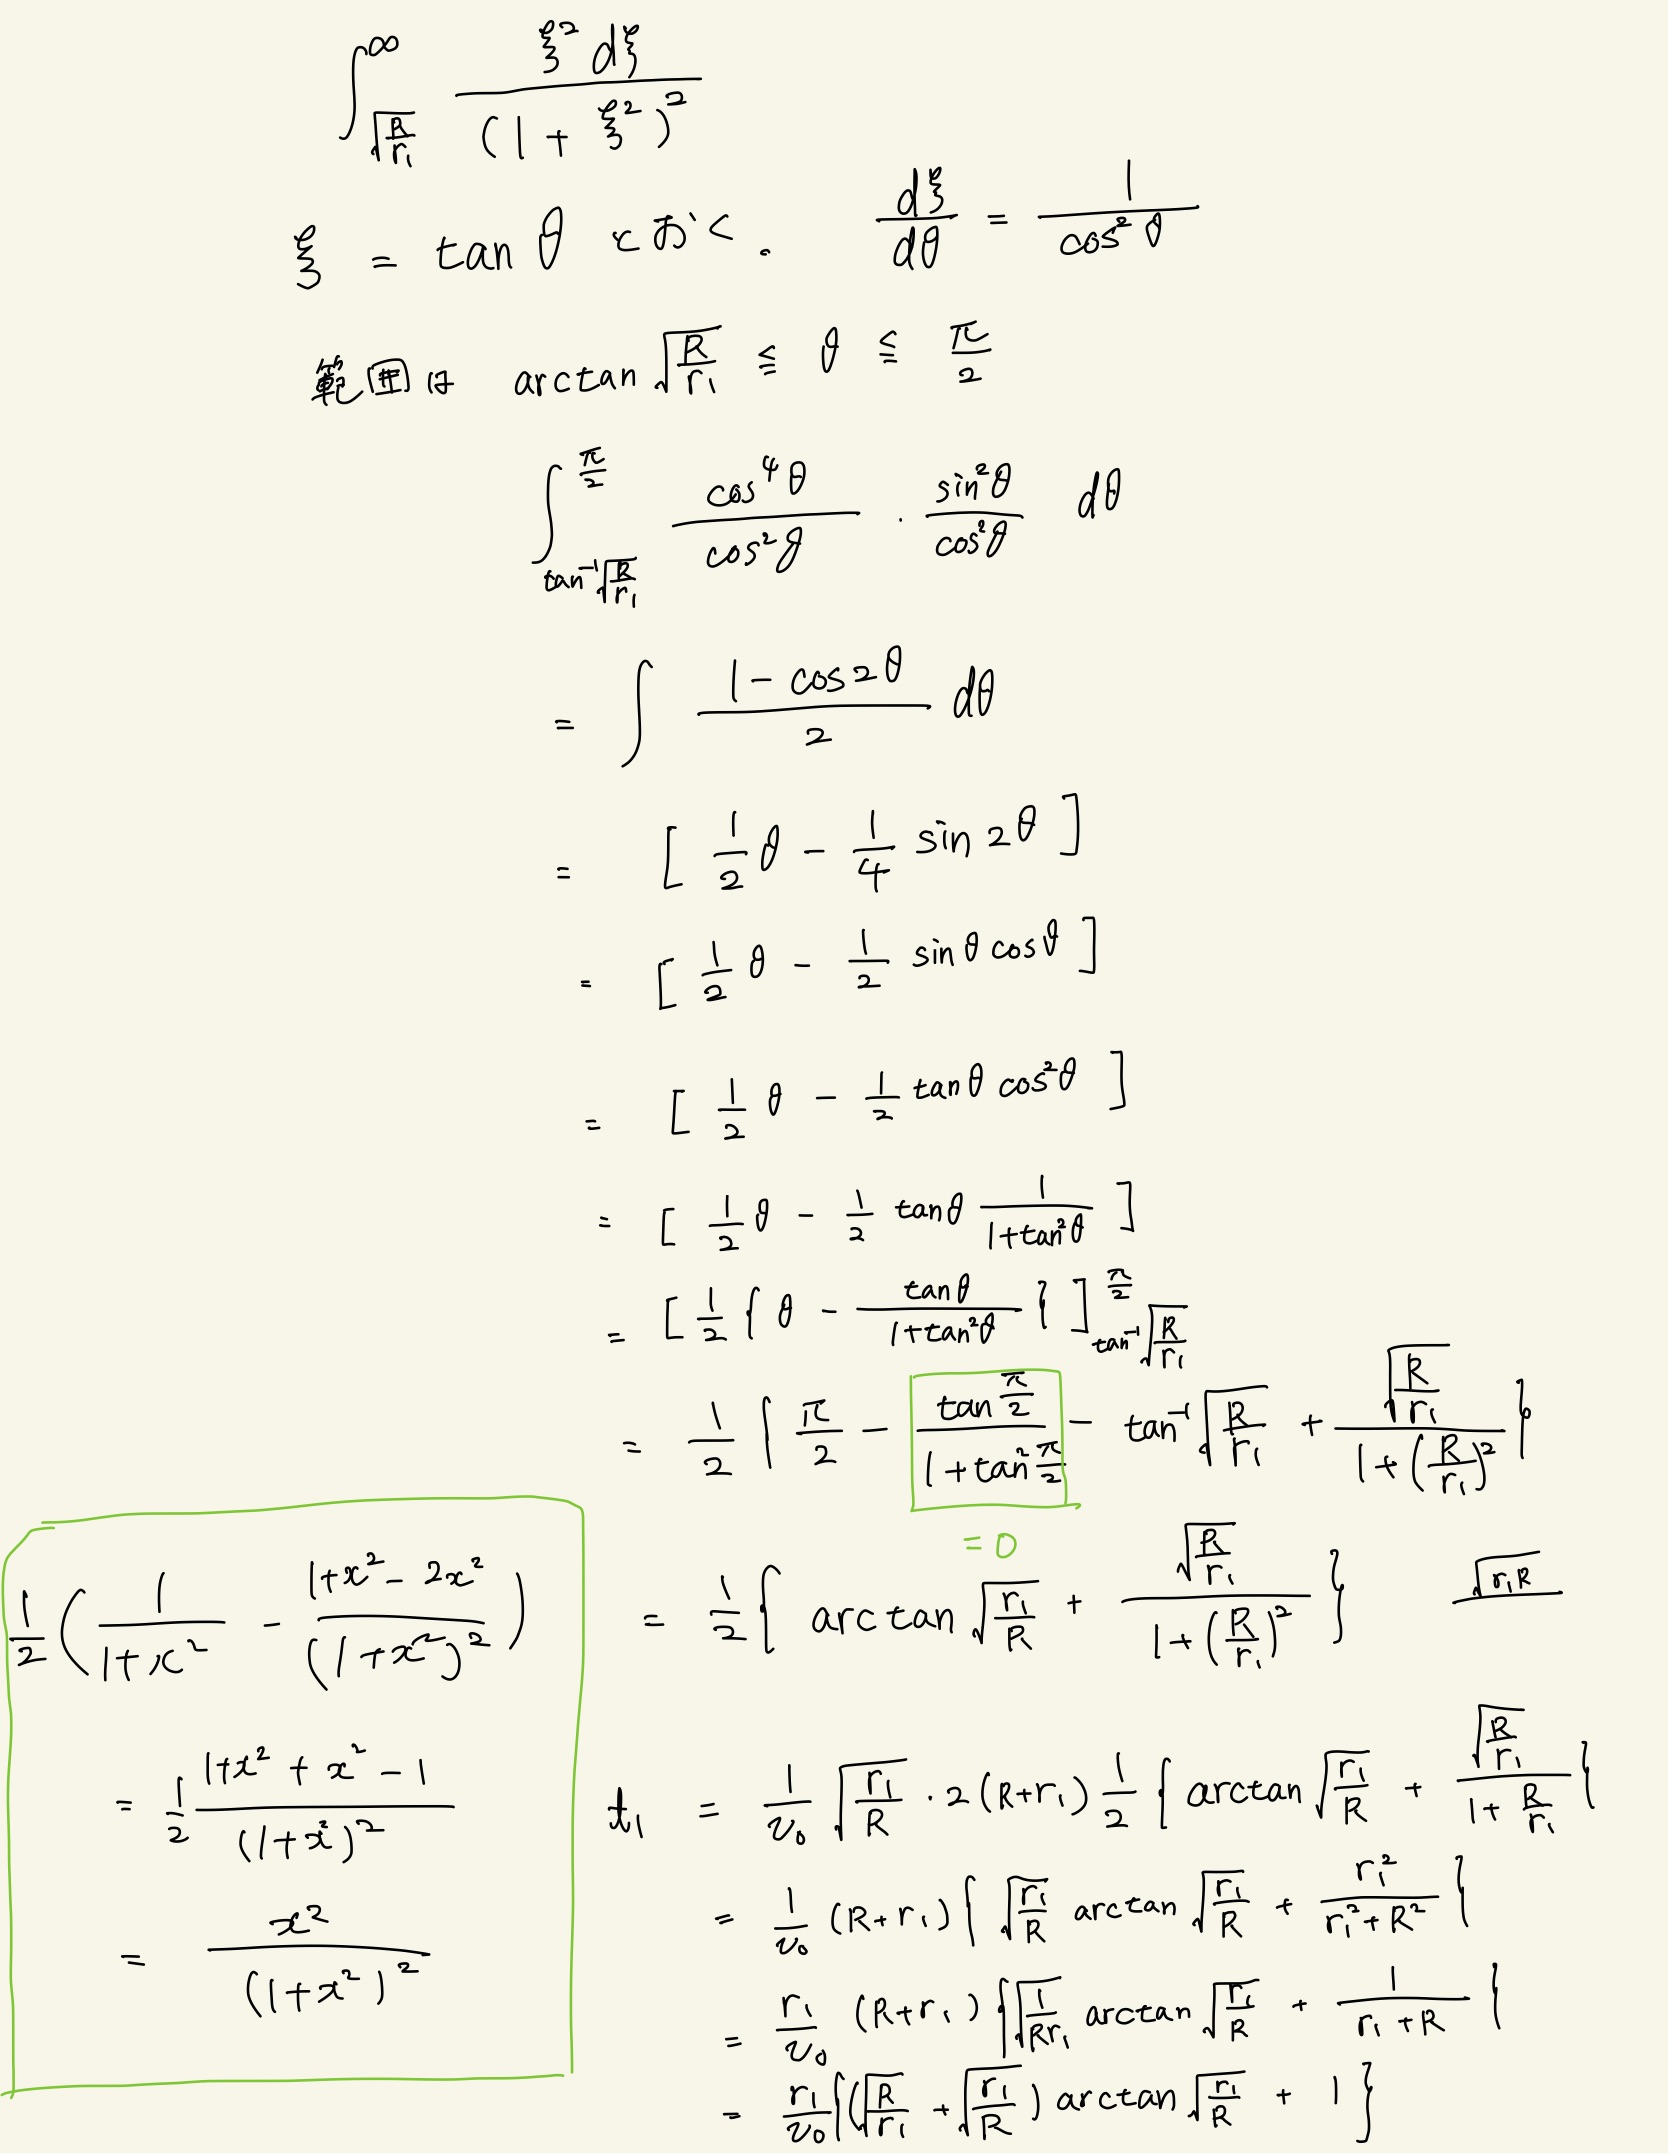 ∫_{√(R/r₁)}^{∞} ξ² dξ / (1 + ξ²)²
ξ = tan θ とおく. dξ/dθ = 1/cos² θ
範囲は arctan √(R/r₁) ≦ θ ≦ π/2
∫_{tan⁻¹√(R/r₁)}^{π/2} cos⁴θ/cos²θ · sin²θ/cos²θ dθ
= ∫ (1 - cos2θ)/2 dθ
= [ 1/2 θ - 1/4 sin 2θ ]
= [ 1/2 θ - 1/2 sin θ cos θ ]
= [ 1/2 θ - 1/2 tan θ cos²θ ]
= [ 1/2 θ - 1/2 tan θ 1/(1+tan²θ) ]
= [ 1/2 { θ - tan θ/(1+tan²θ) } ]_{tan⁻¹√(R/r₁)}^{π/2}
= 1/2 { π/2 - tan(π/2)/(1+tan²(π/2)) - tan⁻¹√(R/r₁) + √(R/r₁)/(1+(R/r₁)²) }
= 0
= 1/2 { arctan √(r₁/R) + √(R/r₁)/(1+(R/r₁)²) } √(r₁R)
t₁ = 1/v₀ √(r₁/R) · 2(R+r₁) 1/2 { arctan √(r₁/R) + √(R/r₁)/(1+R/r₁) }
= 1/v₀ (R+r₁) { √(r₁/R) arctan √(r₁/R) + r₁²/(r₁²+R²) }
= r₁/v₀ (R+r₁) { √(1/Rr₁) arctan √(r₁/R) + 1/(r₁+R) }
= r₁/v₀ { (√(R/r₁) + √(r₁/R)) arctan √(r₁/R) + 1 }
1/2 ( 1/(1+x²) - (1+x²-2x²)/(1+x²)² )
= 1/2 (1+x²+x²-1)/(1+x²)²
= x²/(1+x²)²